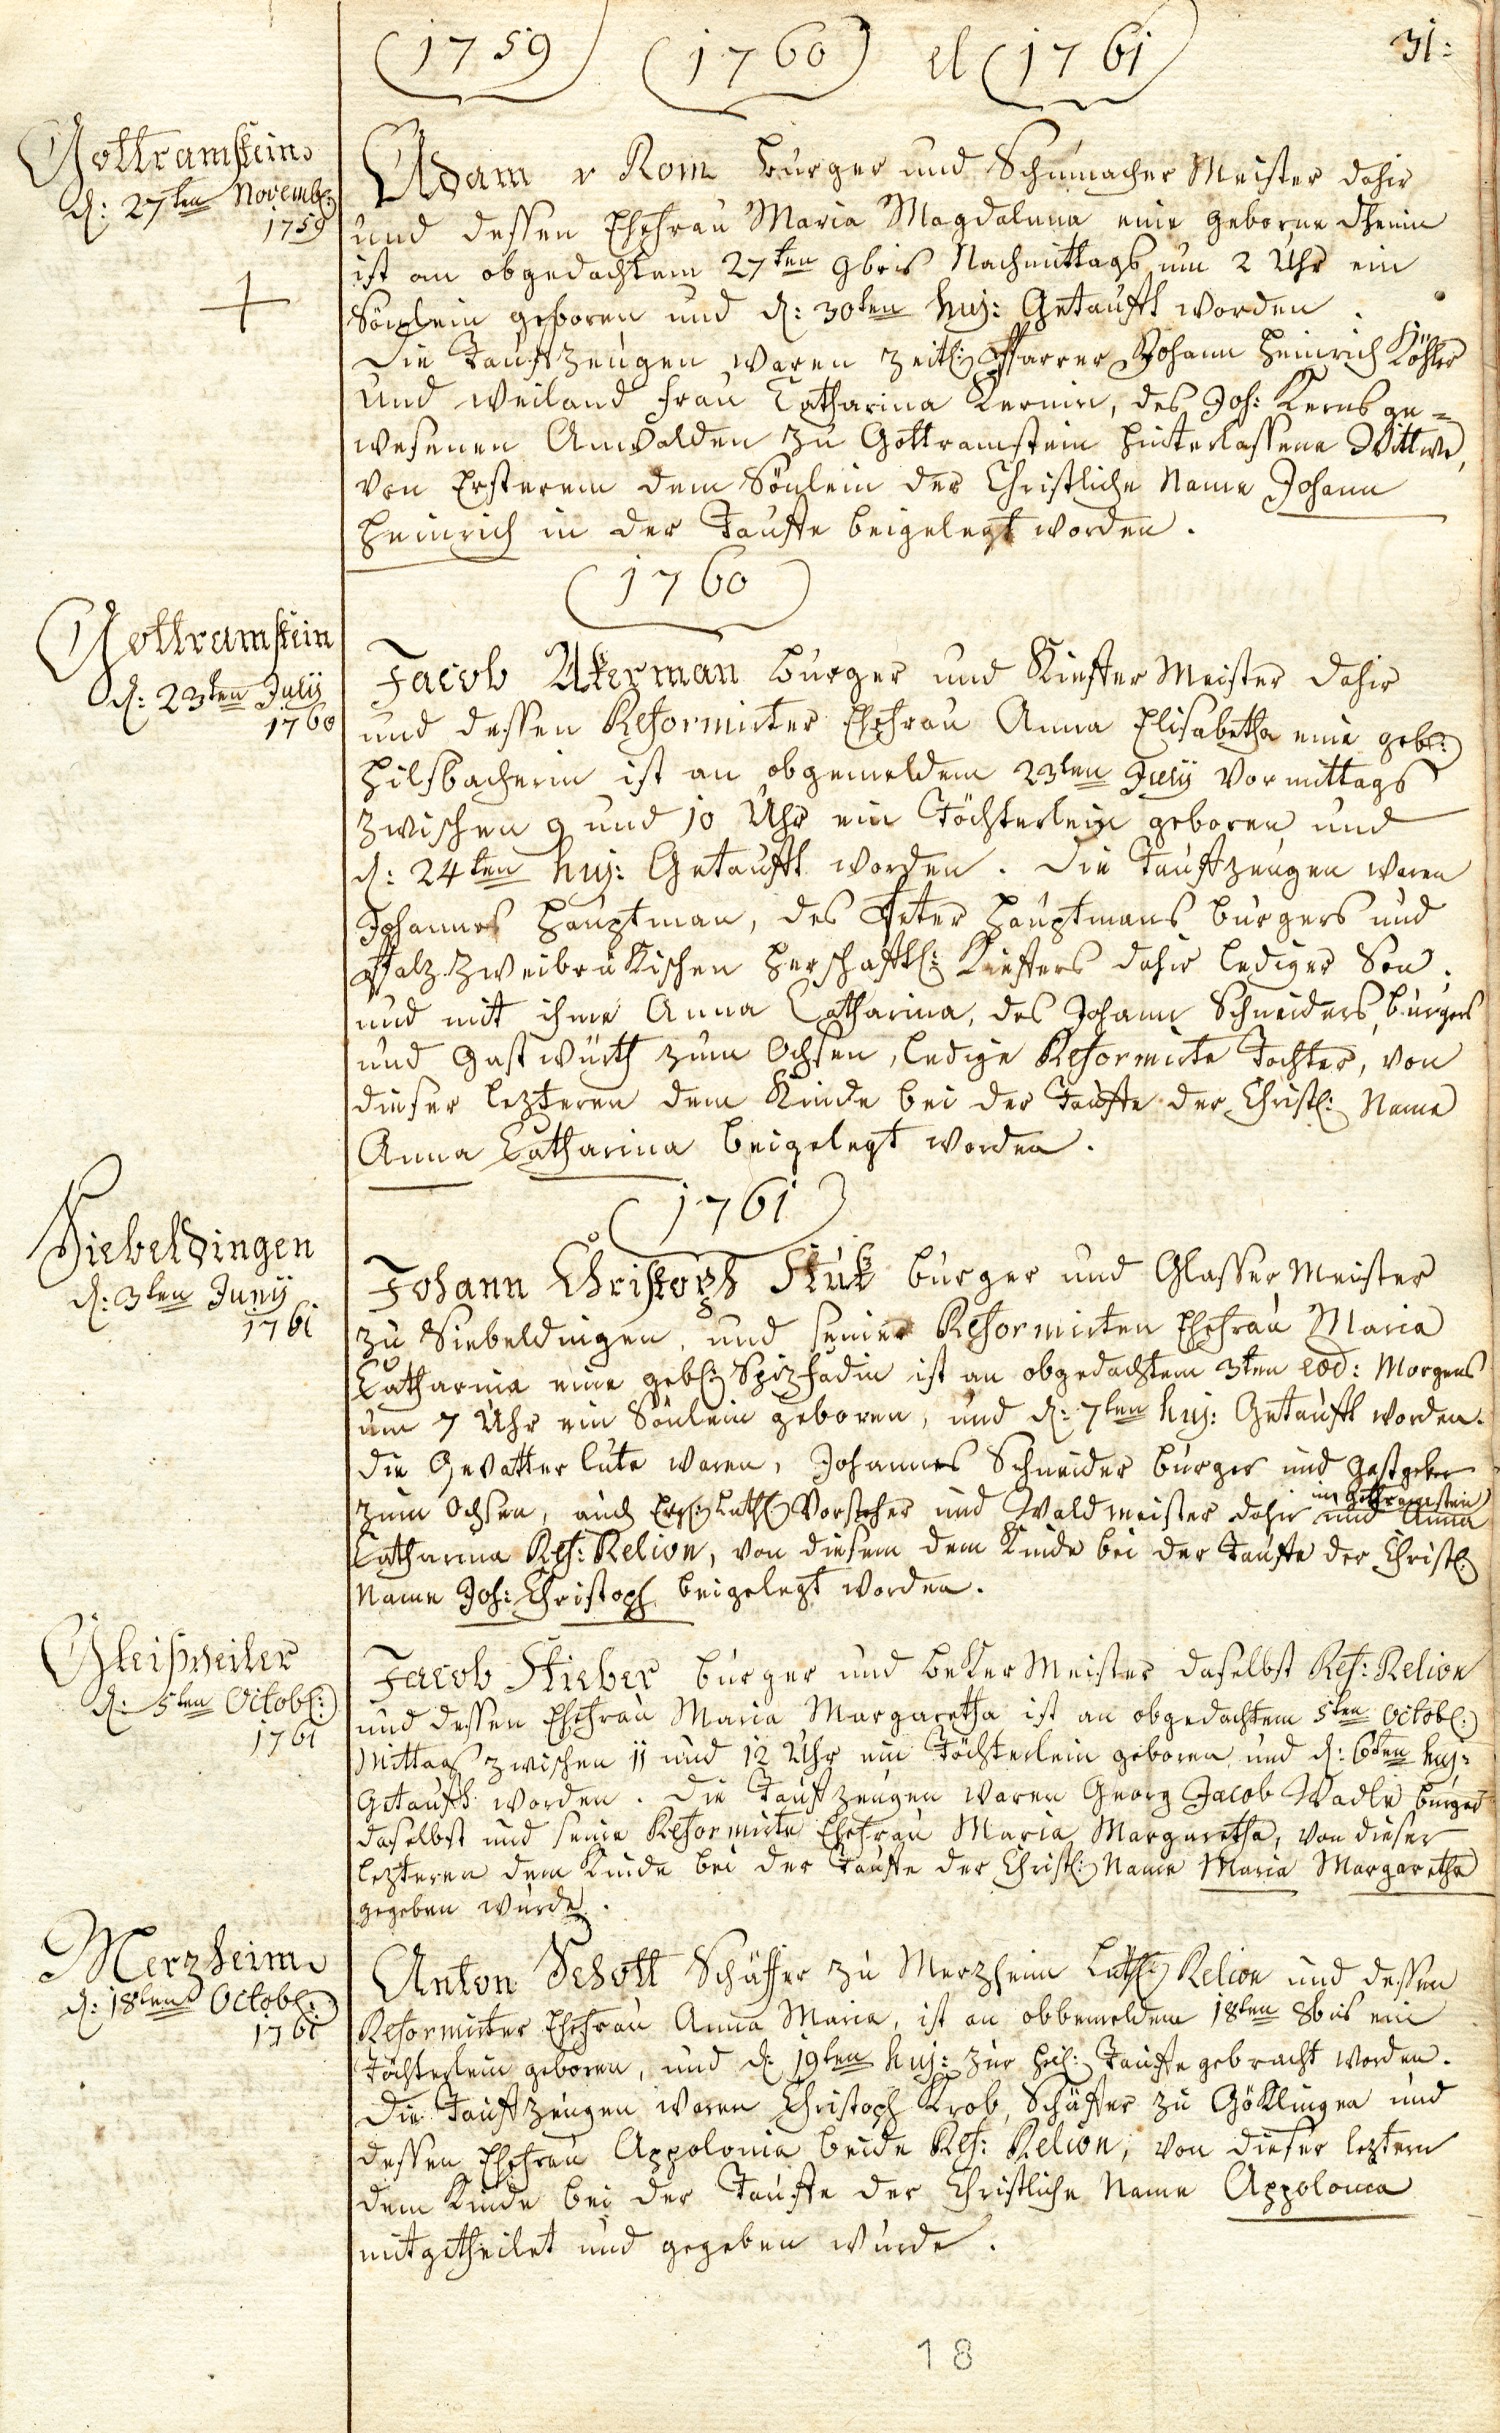 1759 1760 et 1761
31:
Gottramstein
d: 27ten Novemb:
1759
Adam v Rom burger und Schumacher Meister dahir
und dessen Ehefrau Maria Magdalena eine geborne
ist an obgedachtem 27ten 9bris Nachmittags um 2 Uhr ein
Sönlein geboren und d: 30ten huj: Getaufft worden.
Die Tauffzeugen waren zeitl: Pfarrer Johann Heinrich Köhler
und weiland Frau Catharina Kernin, des Joh: Kerns ge=
wesenen Anwalden zu Gottramstein hinterlassene Wittwe,
von Ersterem dem Sönlein der Christliche Name Johann
Heinrich in der Tauffe beigelegt worden.
1760
Gottramstein
d: 23ten Julij
1760
Jacob Akerman burger und Kieffer Meister dahir
und dessen Reformirter Ehefrau Anna Elisabetha eine geb:
Hilsbacherin ist an obgemeldem 23ten Julij Vormittags
zwischen 9 und 10 Uhr ein Töchterlein geboren und
d: 24ten huj: Getaufft worden. Die Tauffzeugen waren
Johannes Hauptman, des Peter Hauptmans burgers und
Pfalz-Zweibrükischen Herschafftl: Kieffers dahir lediger Son.
und mit ihme Anna Catharina, des Johann Schneiders, burgers
und Gastwürth zum Ochsen, ledige Reformirte Tochter, von
dieser lezteren dem Kinde bei der Tauffe der Christl: Name
Anna Catharina beigelegt worden.
1761
Siebeldingen
d: 3ten Junij
1761
Johann Christoph Stuk burger und Glasser Meister
zu Siebeldingen, und seiner Reformirten Ehefrau Maria
Catharina eine geb: Spizfadin ist an obgedachtem 3ten eod: Morgens
um 7 Uhr ein Sönlein geboren, und d: 7ten huj: Getaufft worden.
Die Gevatter lute waren, Johannes Schneider burger und Gastgeber
zum Ochsen, auch Luth: Vorsteher und Waldmeister dahir in Gottramstein und Anna
Catharina Ref: Relion, von diesem dem Kinde bei der Tauffe der Christl:
Name Joh: Christoph beigelegt worden.
Gleisweiler
d: 5ten Octob:
1761
Jacob Stieber burger und beker Meister daselbst Ref: Relion
und dessen Ehefrau Maria Margaretha ist an obgedachtem 5ten Octob:
Mittags zwischen 11 und 12 Uhr ein Töchterlein geboren und d: 6ten huj:
Getaufft worden. Die Tauffzeugen waren Georg Jacob Wadle burger
daselbst und seine Reformirte Ehefrau Maria Margaretha, von dieser
lezteren dem Kinde bei der Tauffe der Christl: Name Maria Margaretha
gegeben wurde.
Merzheim
d: 18ten Octob:
1761
Anton Schott Schäffer zu Merzheim Luth: Relion und dessen
Reformirter Ehefrau Anna Maria, ist an obbemeldem 18ten 8bris ein
Töchterlein geboren, und d: 19ten huj: zur heil: Tauffe gebracht worden.
Die Tauffzeugen waren Christoph Krob, Schäffer zu Göklingen und
dessen Ehefrau Appolonia beide Ref: Relion, von dieser leztern
dem Kinde bei der Tauffe der Christliche Name Appolonia
mitgetheilet und gegeben wurde.
18